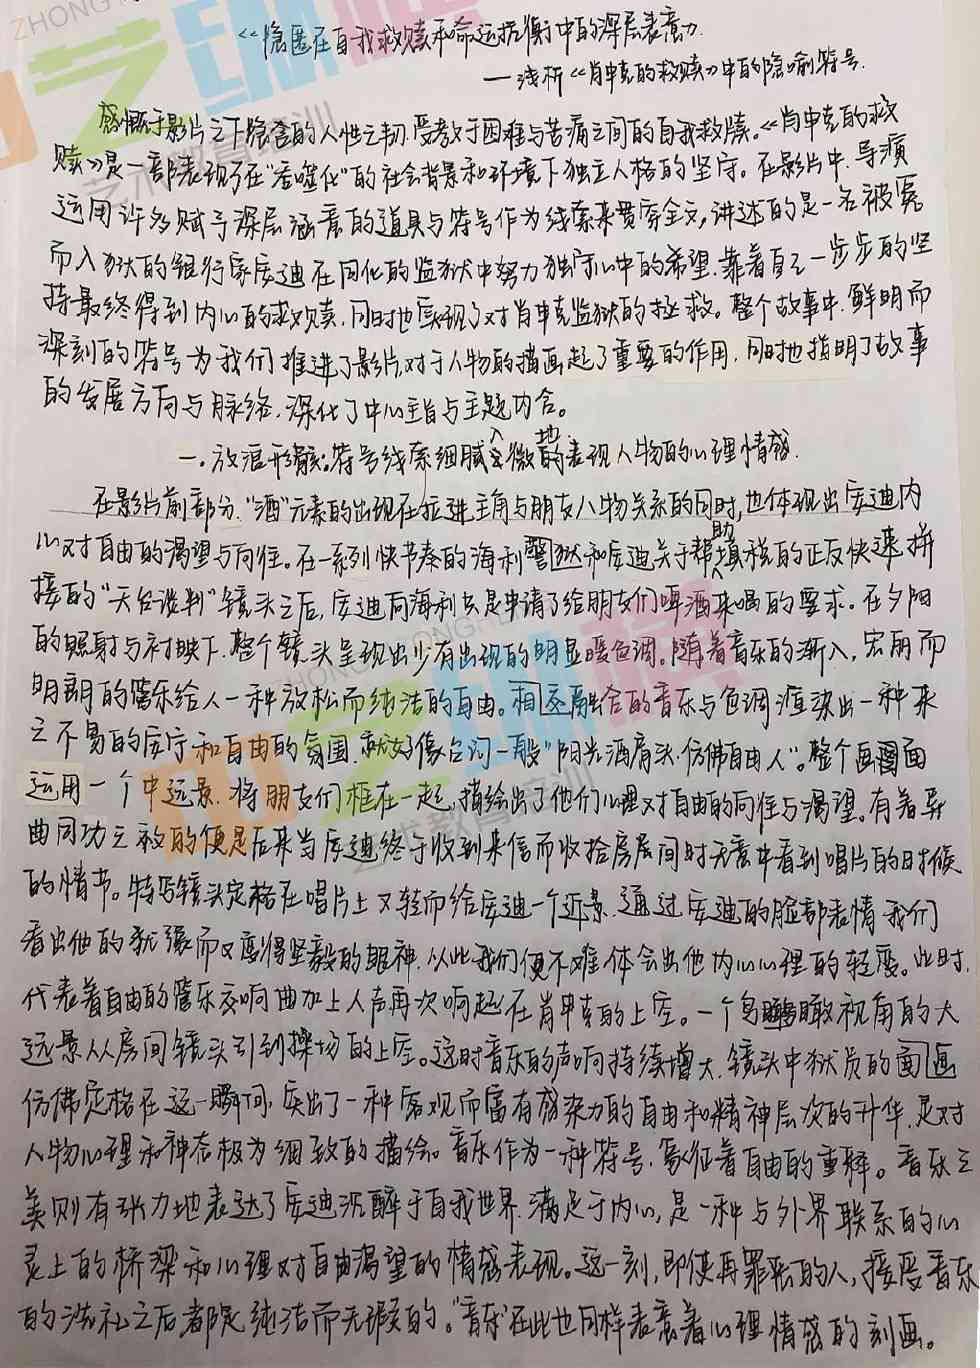 《隐匿在自我救赎和命运抗衡中的深层表意》
——浅析《肖申克的救赎》中的隐喻符号.
感慨于影片之下隐含的人性之韧.受教于困难与苦痛之间的自我救赎.《肖申克的救
赎》是一部表现了在"吞噬化"的社会背景和环境下独立人格的坚守。在影片中.导演
运用许多赋予深层涵意的道具与符号作为线索来贯穿全文,讲述的是一名被冤
而入狱的银行家安迪在同化的监狱中努力独守心中的希望.靠着自己一步步的坚
持最终得到内心的救赎.同时也实现了对肖申克监狱的拯救。整个故事中.鲜明而
深刻的符号为我们推进了影片.对于人物的描画起了重要的作用.同时也指明了故事
的发展方向与脉络.深化了中心主旨与主题内含。
一.放浪形骸:符号线索细腻入微地表现人物的心理情感.
在影片前部分."酒"元素的出现在拉进主角与朋友人物关系的同时,也体现出安迪内
心对自由的渴望与向往。在一系列快节奏的海利狱警和安迪关于帮助填税的正反快速拼
接的"天台谈判"镜头之后,安迪向海利长官申请了给朋友们啤酒来喝的要求。在夕阳
的照射与衬映下.整个镜头呈现出少有出现的明显暖色调。随着音乐的渐入,宏丽而
明朗的管乐给人一种放松而纯洁的自由。相交融合的音乐与色调渲染出一种来
之不易的安宁和自由的氛围.就好像台词一般"阳光洒肩头.仿佛自由人"。整个画面
运用一个中远景.将朋友们框在一起,描绘出了他们心理对自由的向往与渴望。有着异
曲同功之效的便是后来当安迪终于收到来信而收拾房屋间时无意中看到唱片的时候
的情节。特写镜头定格在唱片上又转而给安迪一个近景.通过安迪的脸部表情.我们
看出他的犹豫而又变得坚毅的眼神.从此我们便不难体会出他内心心理的转变。此时.
代表着自由的管乐交响曲加上人声再次响起在肖申克的上空。一个鸟瞰视角的大
远景从房间镜头引到操场的上空。这时音乐的声响持续增大.镜头中狱员的画面
仿佛定格在这一瞬间.突出了一种客观而富有感染力的自由和精神层次的升华.是对
人物心理和神态极为细致的描绘。音乐作为一种符号.象征着自由的重释。音乐之
美则有张力地表达了安迪沉醉于自我世界.满足于内心,是一种与外界联系的心
灵上的桥梁和心理对自由渴望的情感表现。这一刻,即使再罪恶的人,接受音乐
的洗礼之后都是纯洁而无瑕的。"音乐"在此也同样表意着心理情感的刻画。